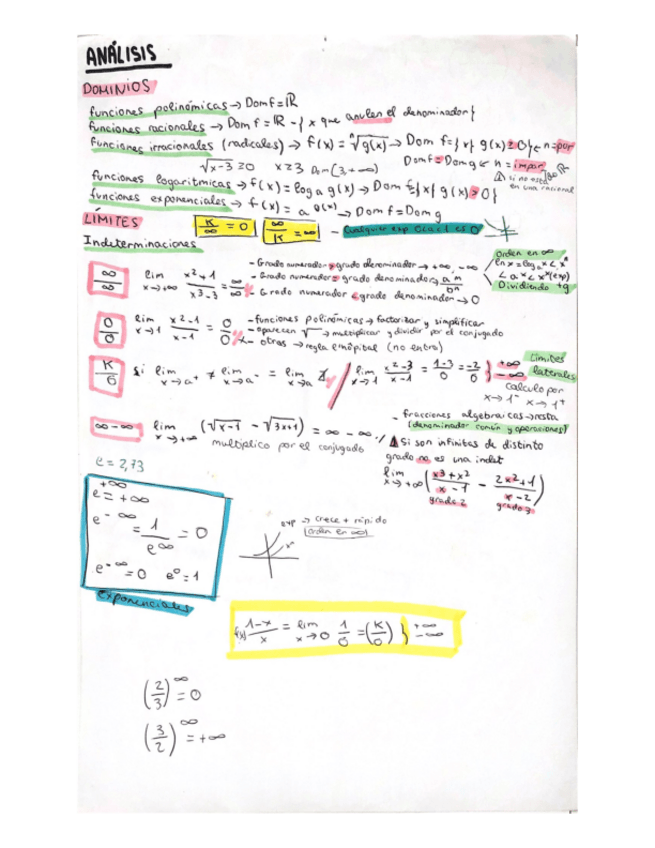 ANÁLISIS
DOMINIOS
funciones polinómicas → Dom f = ℝ
funciones racionales → Dom f = ℝ - { x que anulen el denominador }
funciones irracionales (radicales) → f(x) = ⁿ√g(x) → Dom f = { x / g(x) ≥ 0 } n = par
√x-3 ≥ 0 x ≥ 3 Dom [3, +∞) Dom f = Dom g n = impar
⚠ si no está en una racional
funciones logarítmicas → f(x) = log a g(x) → Dom f = { x / g(x) > 0 }
funciones exponenciales → f(x) = a^g(x) → Dom f = Dom g
LÍMITES
K/∞ = 0 ∞/K = ∞
Indeterminaciones
∞/∞ lim x→+∞ x²+1 / x³-3 = ∞/∞
- Grado numerador > grado denominador → +∞ -∞
- Grado numerador = grado denominador → a^m / b^n
- Grado numerador < grado denominador → 0
Orden en ∞
Dividiendo
0/0 lim x→1 x²-1 / x-1 = 0/0
- funciones polinómicas → factorizar y simplificar
- aparecen √ → multiplicar y dividir por el conjugado
- otras → regla l'hôpital (no entra)
K/0 si lim x→a⁺ ≠ lim x→a⁻ = lim x→a ∄ / lim x→1 x²-3 / x-1 = 1-3 / 0 = -2/0 } +∞ -∞
Límites laterales
calculo por
x→1⁻ x→1⁺
∞-∞ lim x→+∞ (√x-1 - √3x+1) = ∞-∞
multiplico por el conjugado
- fracciones algebraicas → resta
(denominador común y operaciones)
⚠ Si son infinitas de distinto
grado no es una indet
lim x→+∞ ( x³+x² / x-1 - 2x²+1 / x-2 )
grado 2
e = 2,73
e^+∞ = +∞
e^-∞ = 1/e^∞ = 0
e^-∞ = 0 e⁰ = 1
exponenciales
exp → crece + rápido
orden en ∞
f(x) 1-x / x = lim x→0 1/0 = (K/0) } +∞ -∞
(2/3)^∞ = 0
(3/2)^∞ = +∞